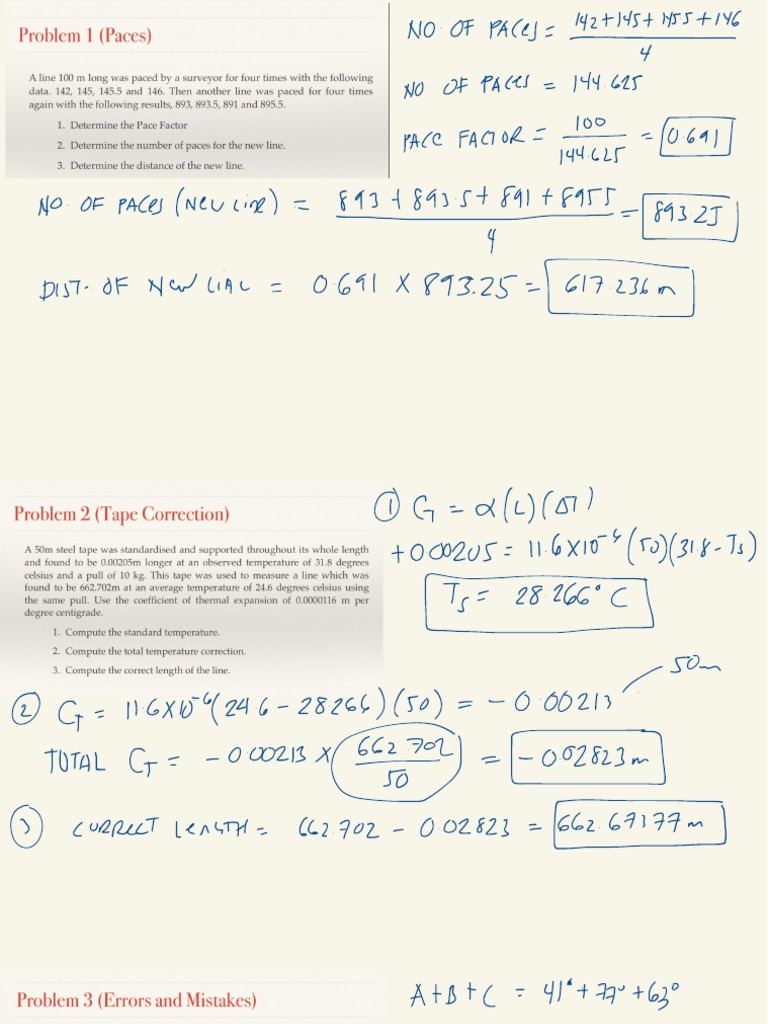 Problem 1 (Paces)
A line 100 m long was paced by a surveyor for four times with the following
data. 142, 145, 145.5 and 146. Then another line was paced for four times
again with the following results, 893, 893.5, 891 and 895.5.
1. Determine the Pace Factor
2. Determine the number of paces for the new line.
3. Determine the distance of the new line.
NO. OF PACES = 142+145+145.5+146
4
NO OF PACES = 144.625
PACE FACTOR = 100 = 0.691
144.625
NO. OF PACES (NEW LINE) = 893 + 893.5 + 891 + 895.5 = 893.25
4
DIST. OF NEW LINE = 0.691 X 893.25 = 617.236 m
Problem 2 (Tape Correction)
A 50m steel tape was standardised and supported throughout its whole length
and found to be 0.00205m longer at an observed temperature of 31.8 degrees
celsius and a pull of 10 kg. This tape was used to measure a line which was
found to be 662.702m at an average temperature of 24.6 degrees celsius using
the same pull. Use the coefficient of thermal expansion of 0.0000116 m per
degree centigrade.
1. Compute the standard temperature.
2. Compute the total temperature correction.
3. Compute the correct length of the line.
① CT = α(L)(ΔT)
+0.00205 = 11.6X10⁻⁶(50)(31.8-Ts)
Ts = 28.266° C
50m
② CT = 11.6X10⁻⁶(24.6 - 28.266)(50) = -0.00213
TOTAL CT = -0.00213 X 662.702 = -0.02823m
50
③ CORRECT LENGTH = 662.702 - 0.02823 = 662.67377m
Problem 3 (Errors and Mistakes)
A+B+C = 41°+77°+63°